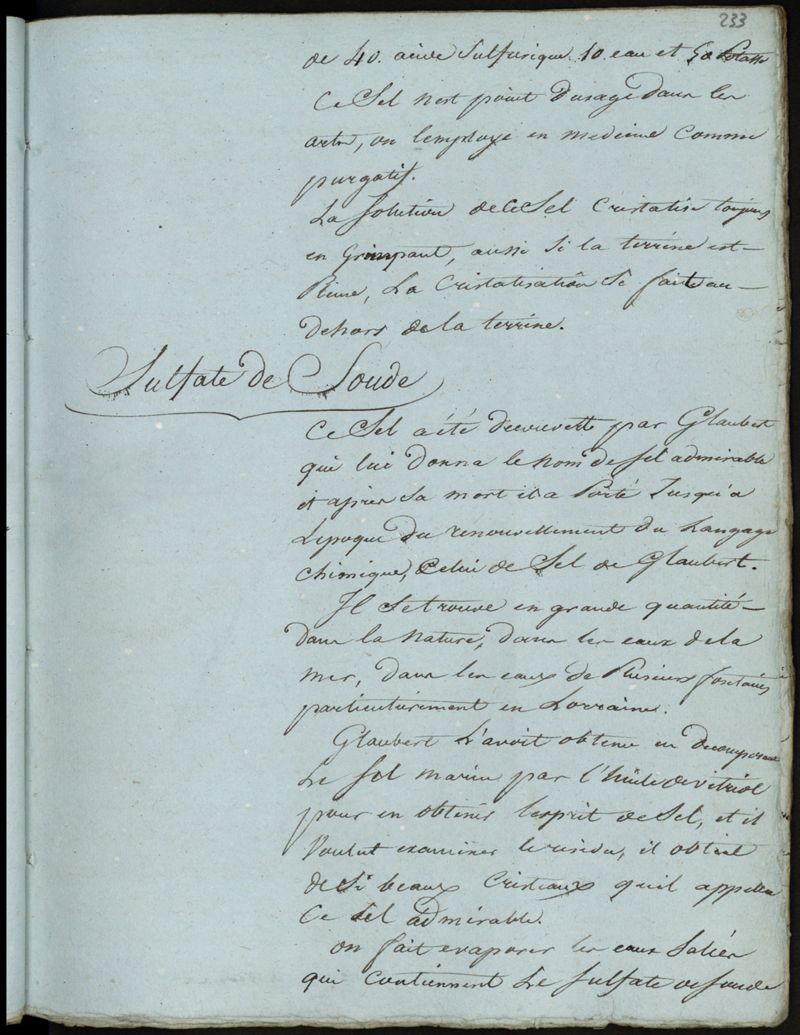 233
de 40. acide Sulfurique. 10. eau et 50 Potasse
Ce Sel n'est point d'usage dans les
arts, on l'employe en medecine comme
purgatif.
La Solution de Ce Sel Cristalise toujours
en Grimpant, aussi Si la terrine est
Pleine, La Cristalisation Se fait au
dehors de la terrine.
Sulfate de Soude
Ce Sel a été decouverte par Glaubert
qui lui donna le nom de Sel admirable
et après Sa mort il a Porté Jusqu'a
L'epoque du renouvellement du Langage
Chimique, Celui de Sel de Glaubert.
Il Se trouve en grande quantité
dans la Nature, dans les eaux de la
mer, dans les eaux de Plusieurs fontaines
particulièrement en Lorraine.
Glaubert L'avoit obtenu en Decomposant
Le Sel marin par l'huile de vitriol
pour en obtenir l'esprit de Sel, et il
Voulut examiner le residu, il obtint
de Si beaux Cristeaux qu'il appella
Ce Sel admirable.
on fait evaporer les eaux Salées
qui Contiennent Le Sulfate de Soude